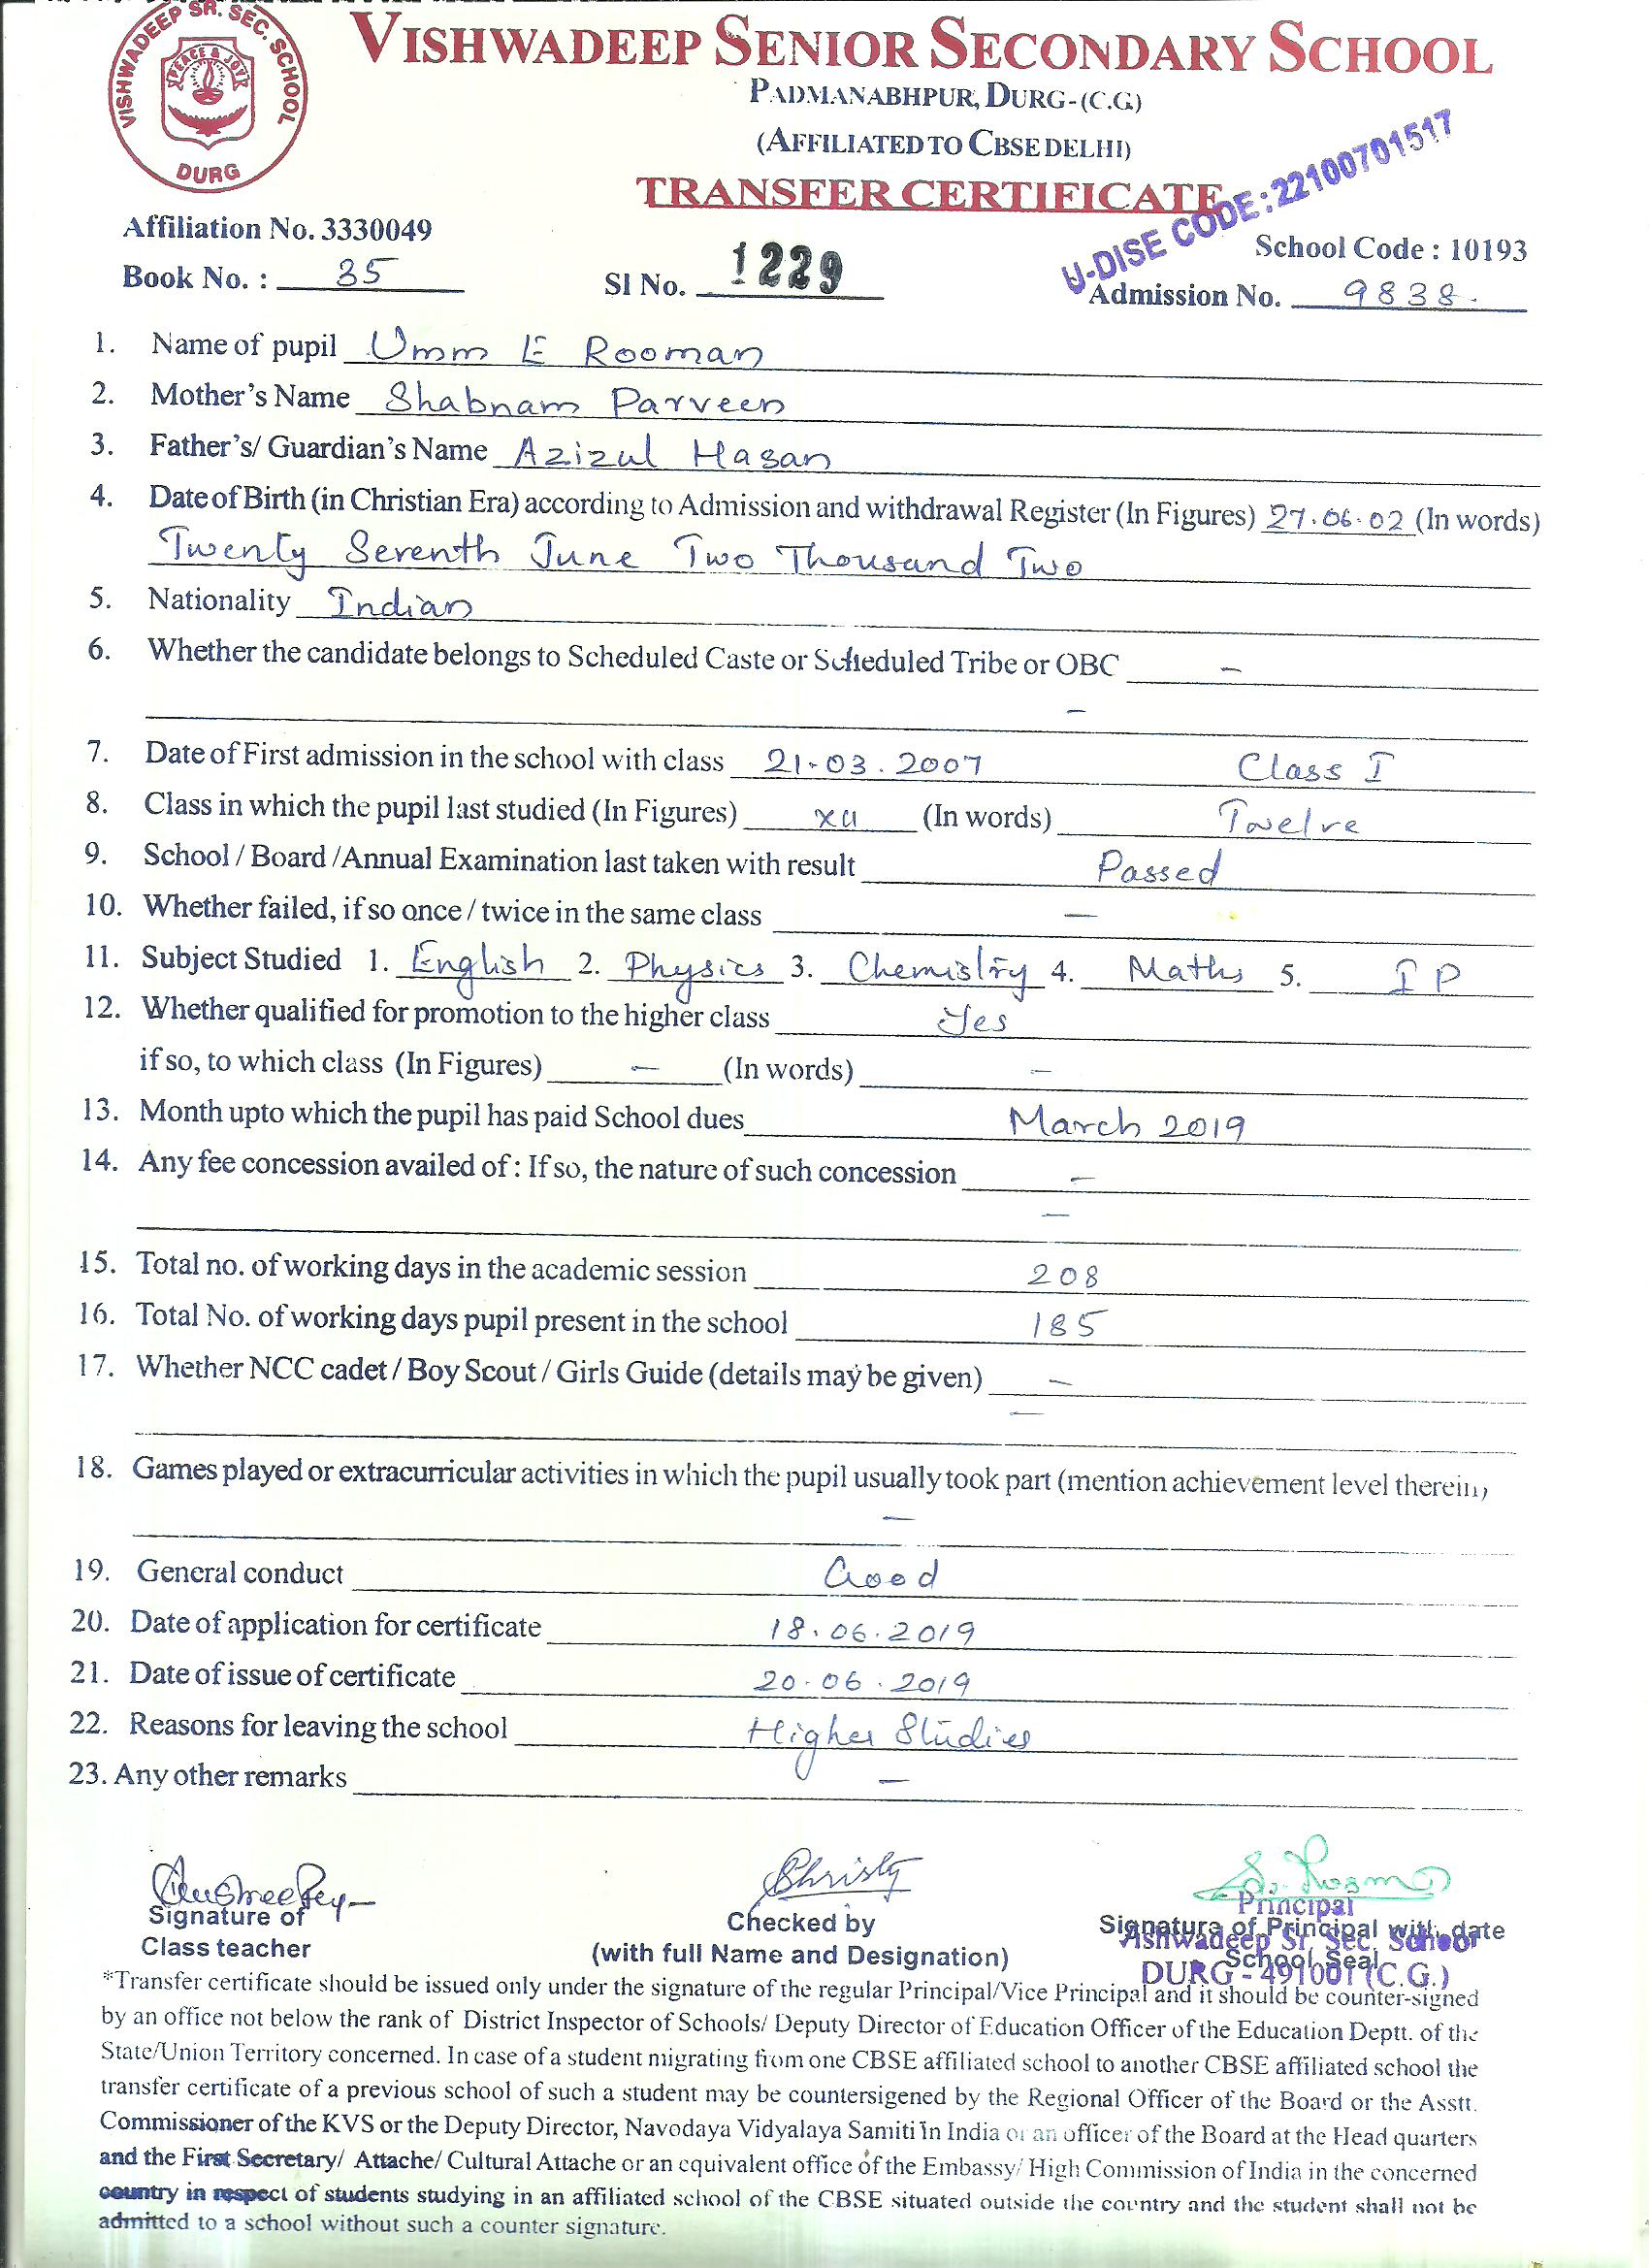 VISHWADEEP SR. SEC. SCHOOL
PEACE & JOY
DURG
VISHWADEEP SENIOR SECONDARY SCHOOL
PADMANABHPUR, DURG-(C.G.)
(AFFILIATED TO CBSE DELHI)
TRANSFER CERTIFICATE
U-DISE CODE: 22100701517
Affiliation No. 3330049
School Code : 10193
Book No. : 35 Sl No. 1229 Admission No. 9838.
1. Name of pupil Umm E Rooman
2. Mother's Name Shabnam Parveen
3. Father's/ Guardian's Name Azizul Hasan
4. Date of Birth (in Christian Era) according to Admission and withdrawal Register (In Figures) 27.06.02 (In words)
Twenty Seventh June Two Thousand Two
5. Nationality Indian
6. Whether the candidate belongs to Scheduled Caste or Scheduled Tribe or OBC –
–
7. Date of First admission in the school with class 21-03.2007 Class I
8. Class in which the pupil last studied (In Figures) XII (In words) Twelve
9. School / Board /Annual Examination last taken with result Passed
10. Whether failed, if so once / twice in the same class —
11. Subject Studied 1. English 2. Physics 3. Chemistry 4. Maths 5. I P
12. Whether qualified for promotion to the higher class Yes
if so, to which class (In Figures) – (In words) –
13. Month upto which the pupil has paid School dues March 2019
14. Any fee concession availed of : If so, the nature of such concession –
–
15. Total no. of working days in the academic session 208
16. Total No. of working days pupil present in the school 185
17. Whether NCC cadet / Boy Scout / Girls Guide (details may be given) –
–
18. Games played or extracurricular activities in which the pupil usually took part (mention achievement level therein)
–
19. General conduct Good
20. Date of application for certificate 18.06.2019
21. Date of issue of certificate 20.06.2019
22. Reasons for leaving the school Higher Studies
23. Any other remarks –
Christy
Principal
Signature of Class teacher
Checked by
(with full Name and Designation)
Signature of Principal with date
School Seal
Vishwadeep Sr. Sec. School
DURG - 491001 (C.G.)
*Transfer certificate should be issued only under the signature of the regular Principal/Vice Principal and it should be counter-signed
by an office not below the rank of District Inspector of Schools/ Deputy Director of Education Officer of the Education Deptt. of the
State/Union Territory concerned. In case of a student migrating from one CBSE affiliated school to another CBSE affiliated school the
transfer certificate of a previous school of such a student may be countersigened by the Regional Officer of the Board or the Asstt.
Commissioner of the KVS or the Deputy Director, Navodaya Vidyalaya Samiti in India or an officer of the Board at the Head quarters
and the First Secretary/ Attache/ Cultural Attache or an equivalent office of the Embassy/ High Commission of India in the concerned
country in respect of students studying in an affiliated school of the CBSE situated outside the country and the student shall not be
admitted to a school without such a counter signature.